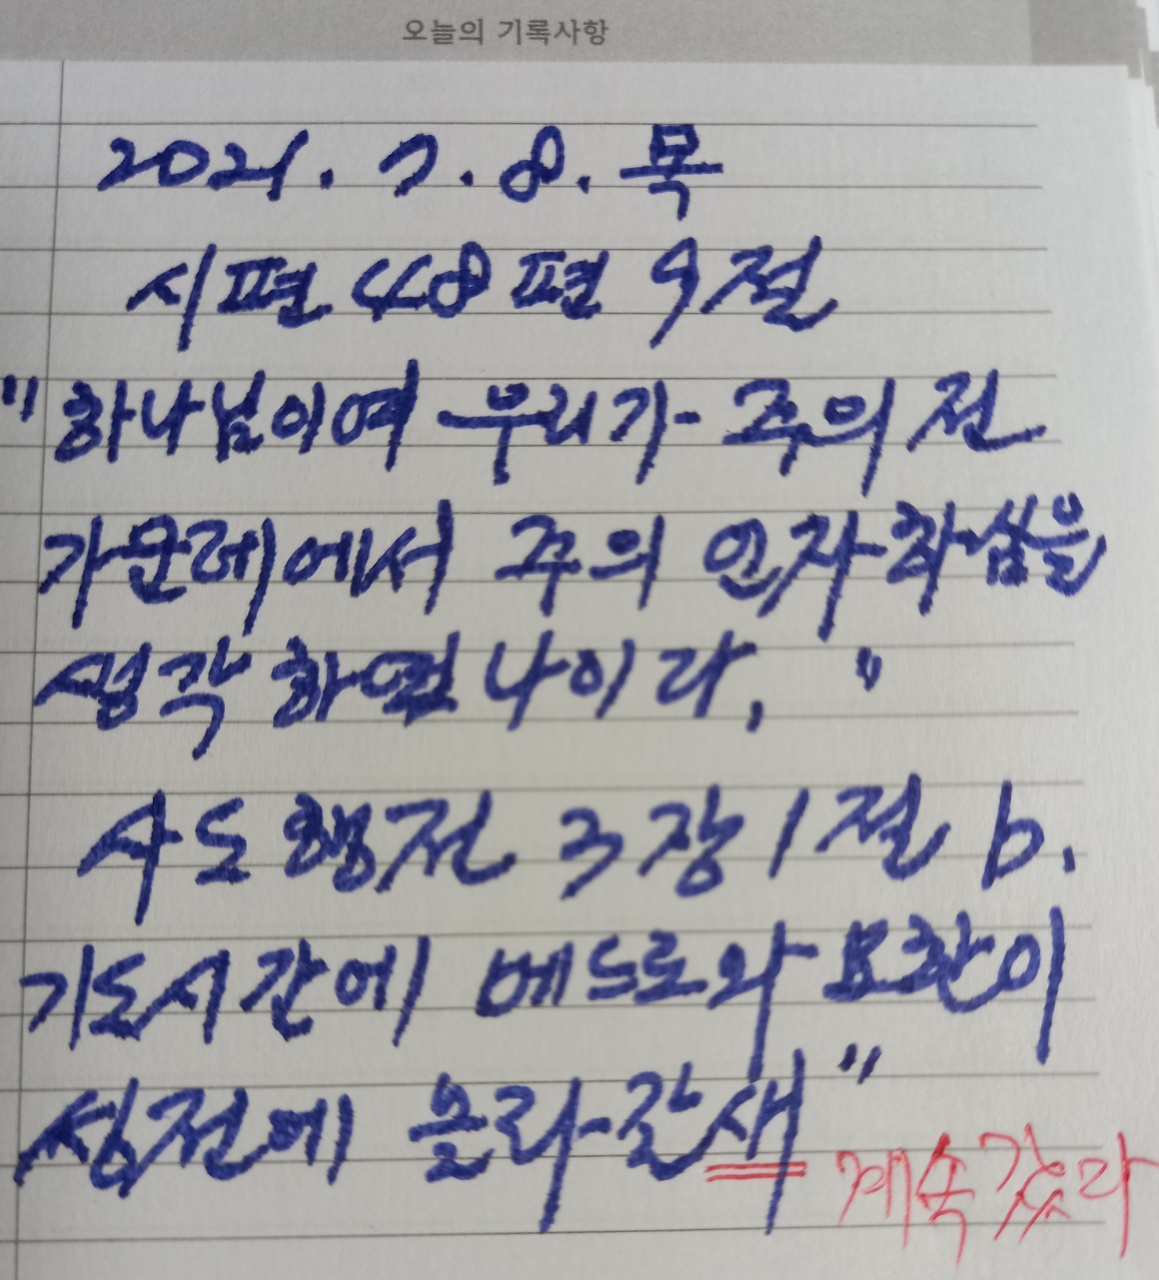 오늘의 기록사항
2021. 7. 8. 목
시편 48편 9절
"하나님이여 우리가 주의 전
가운데에서 주의 인자하심을
생각하였나이다."
사도행전 3장 1절 b.
기도시간에 베드로와 요한이
성전에 올라갈새"
계속갔다